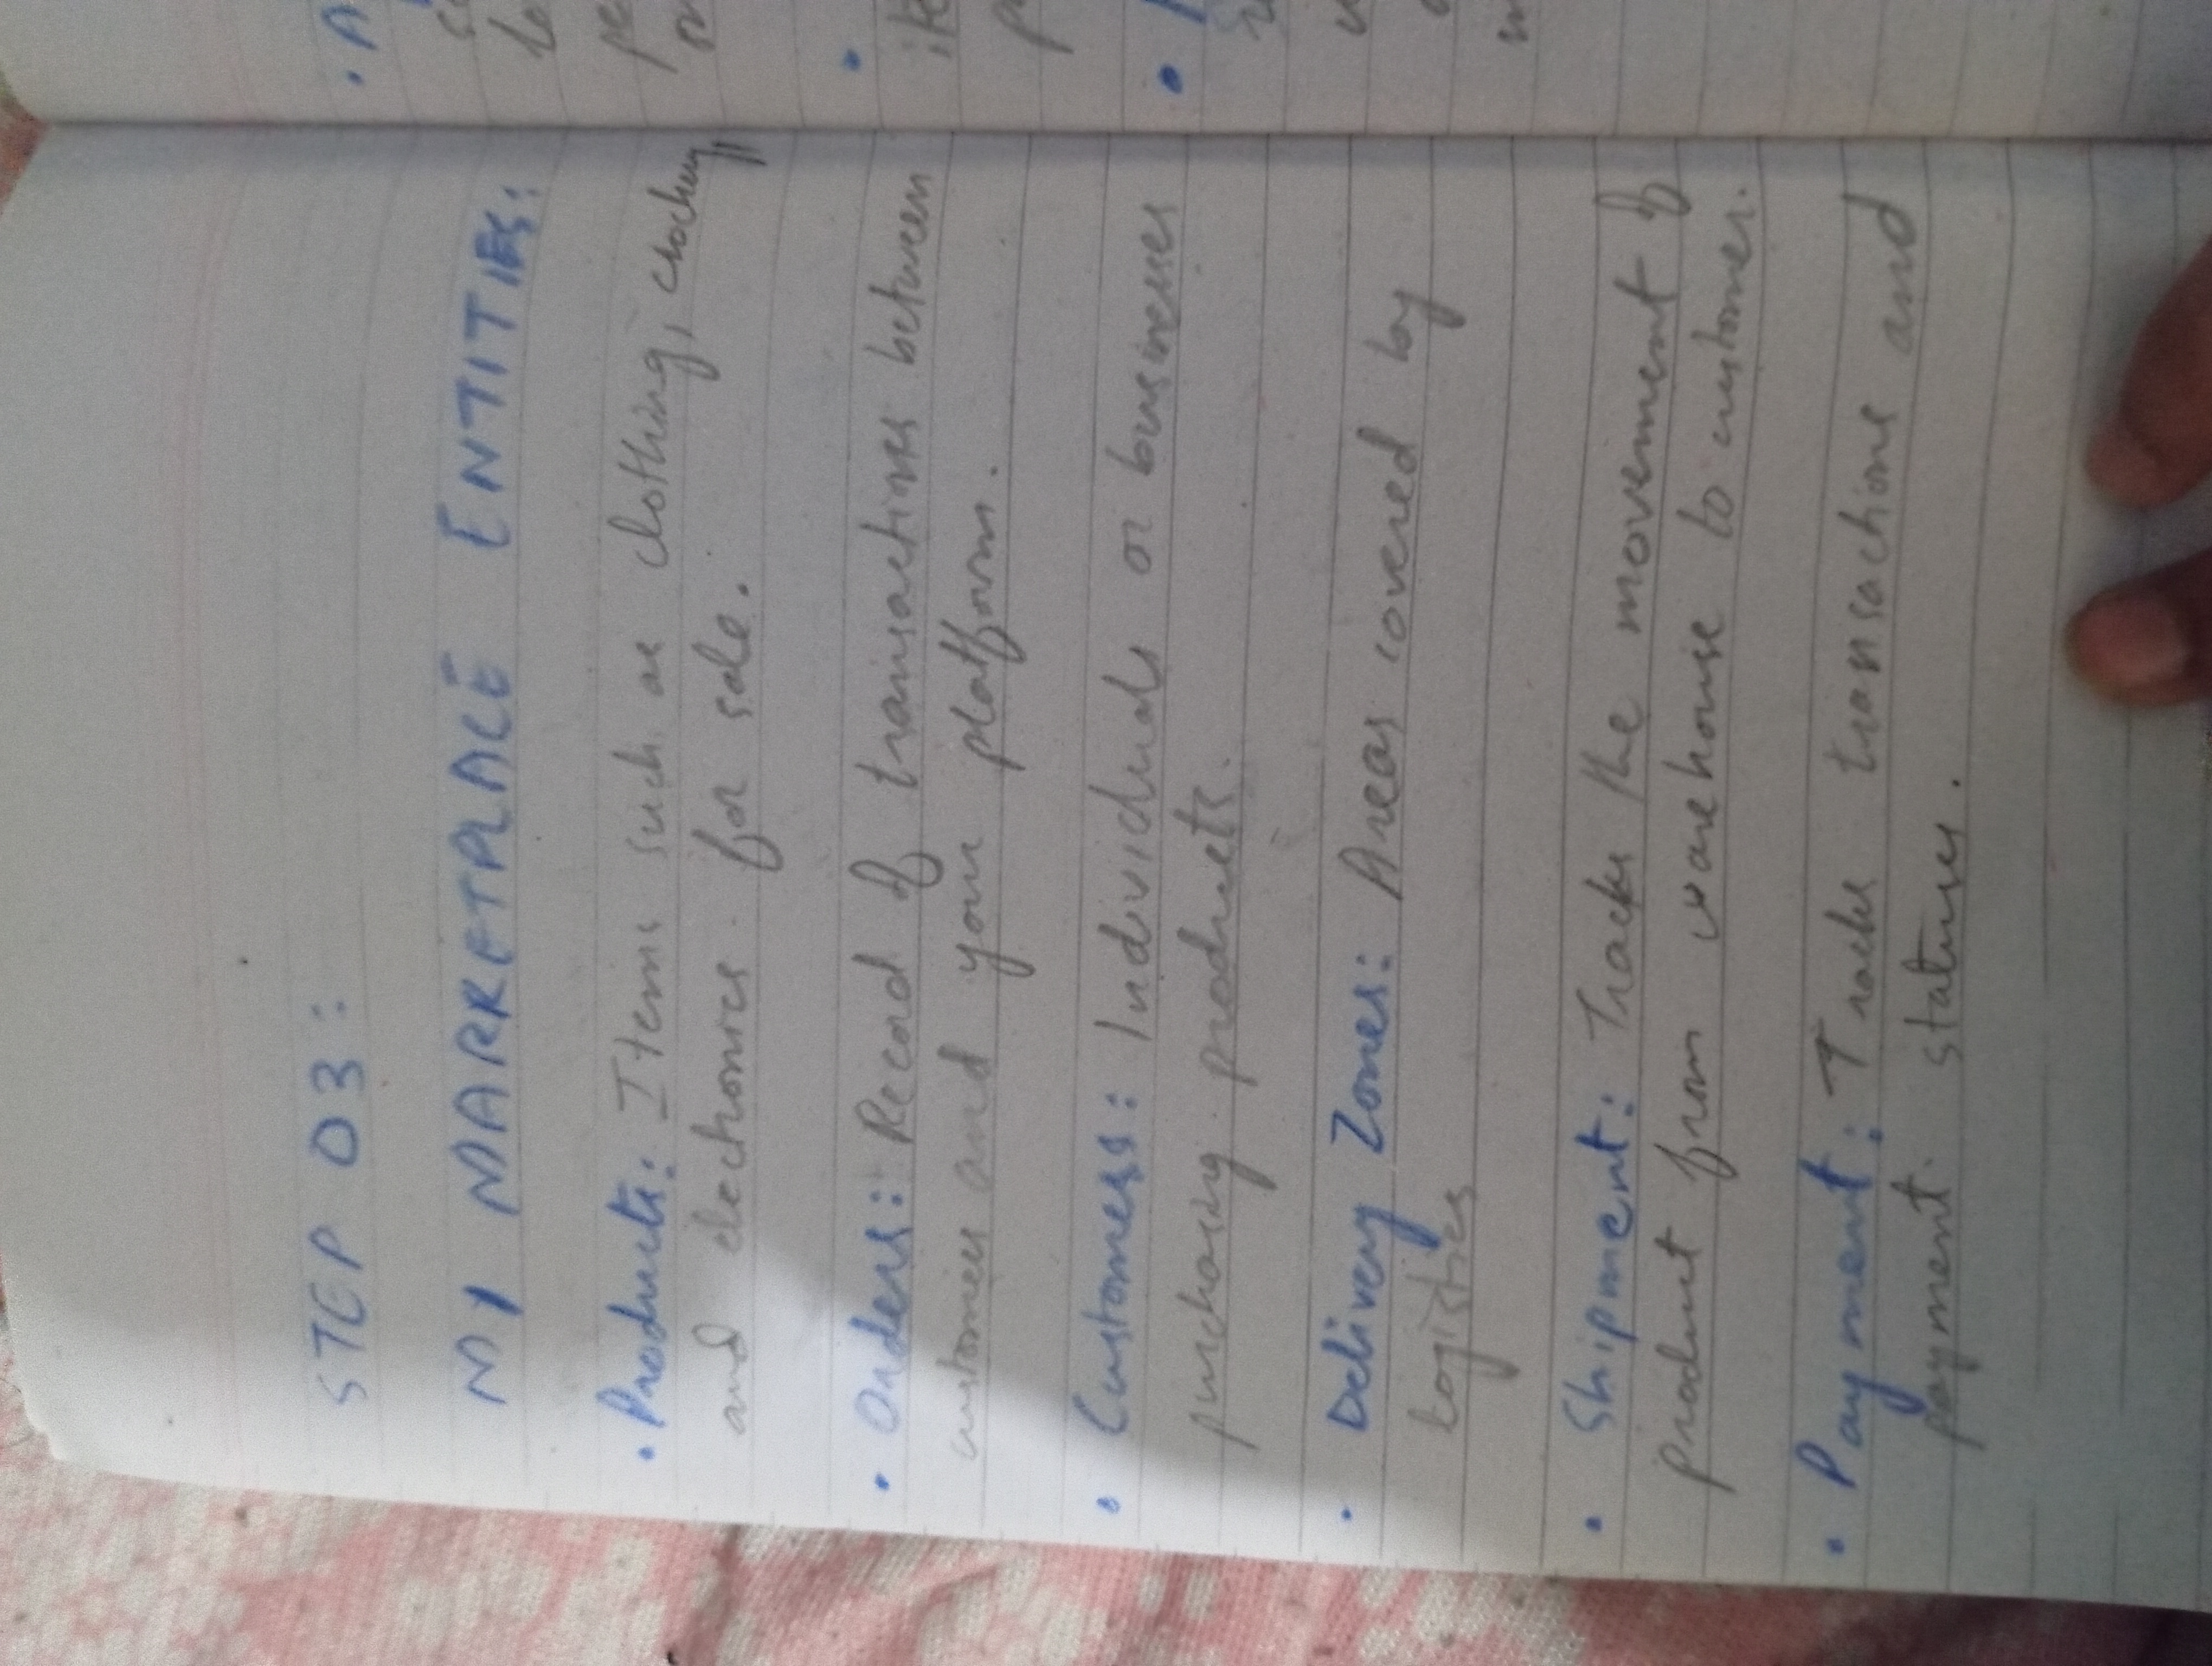 STEP 03:
MY MARKETPLACE ENTITIES:
• Products: Items such as clothing, crockery,
and electronics for sale.
• Orders: Record of transactions between
customers and your platform.
• Customers: Individuals or businesses
purchasing products.
• Delivery Zones: Areas covered by
logistics
• Shipment: Tracks the movement of
product from warehouse to customer.
• Payment: Tracks transactions and
payment statuses.